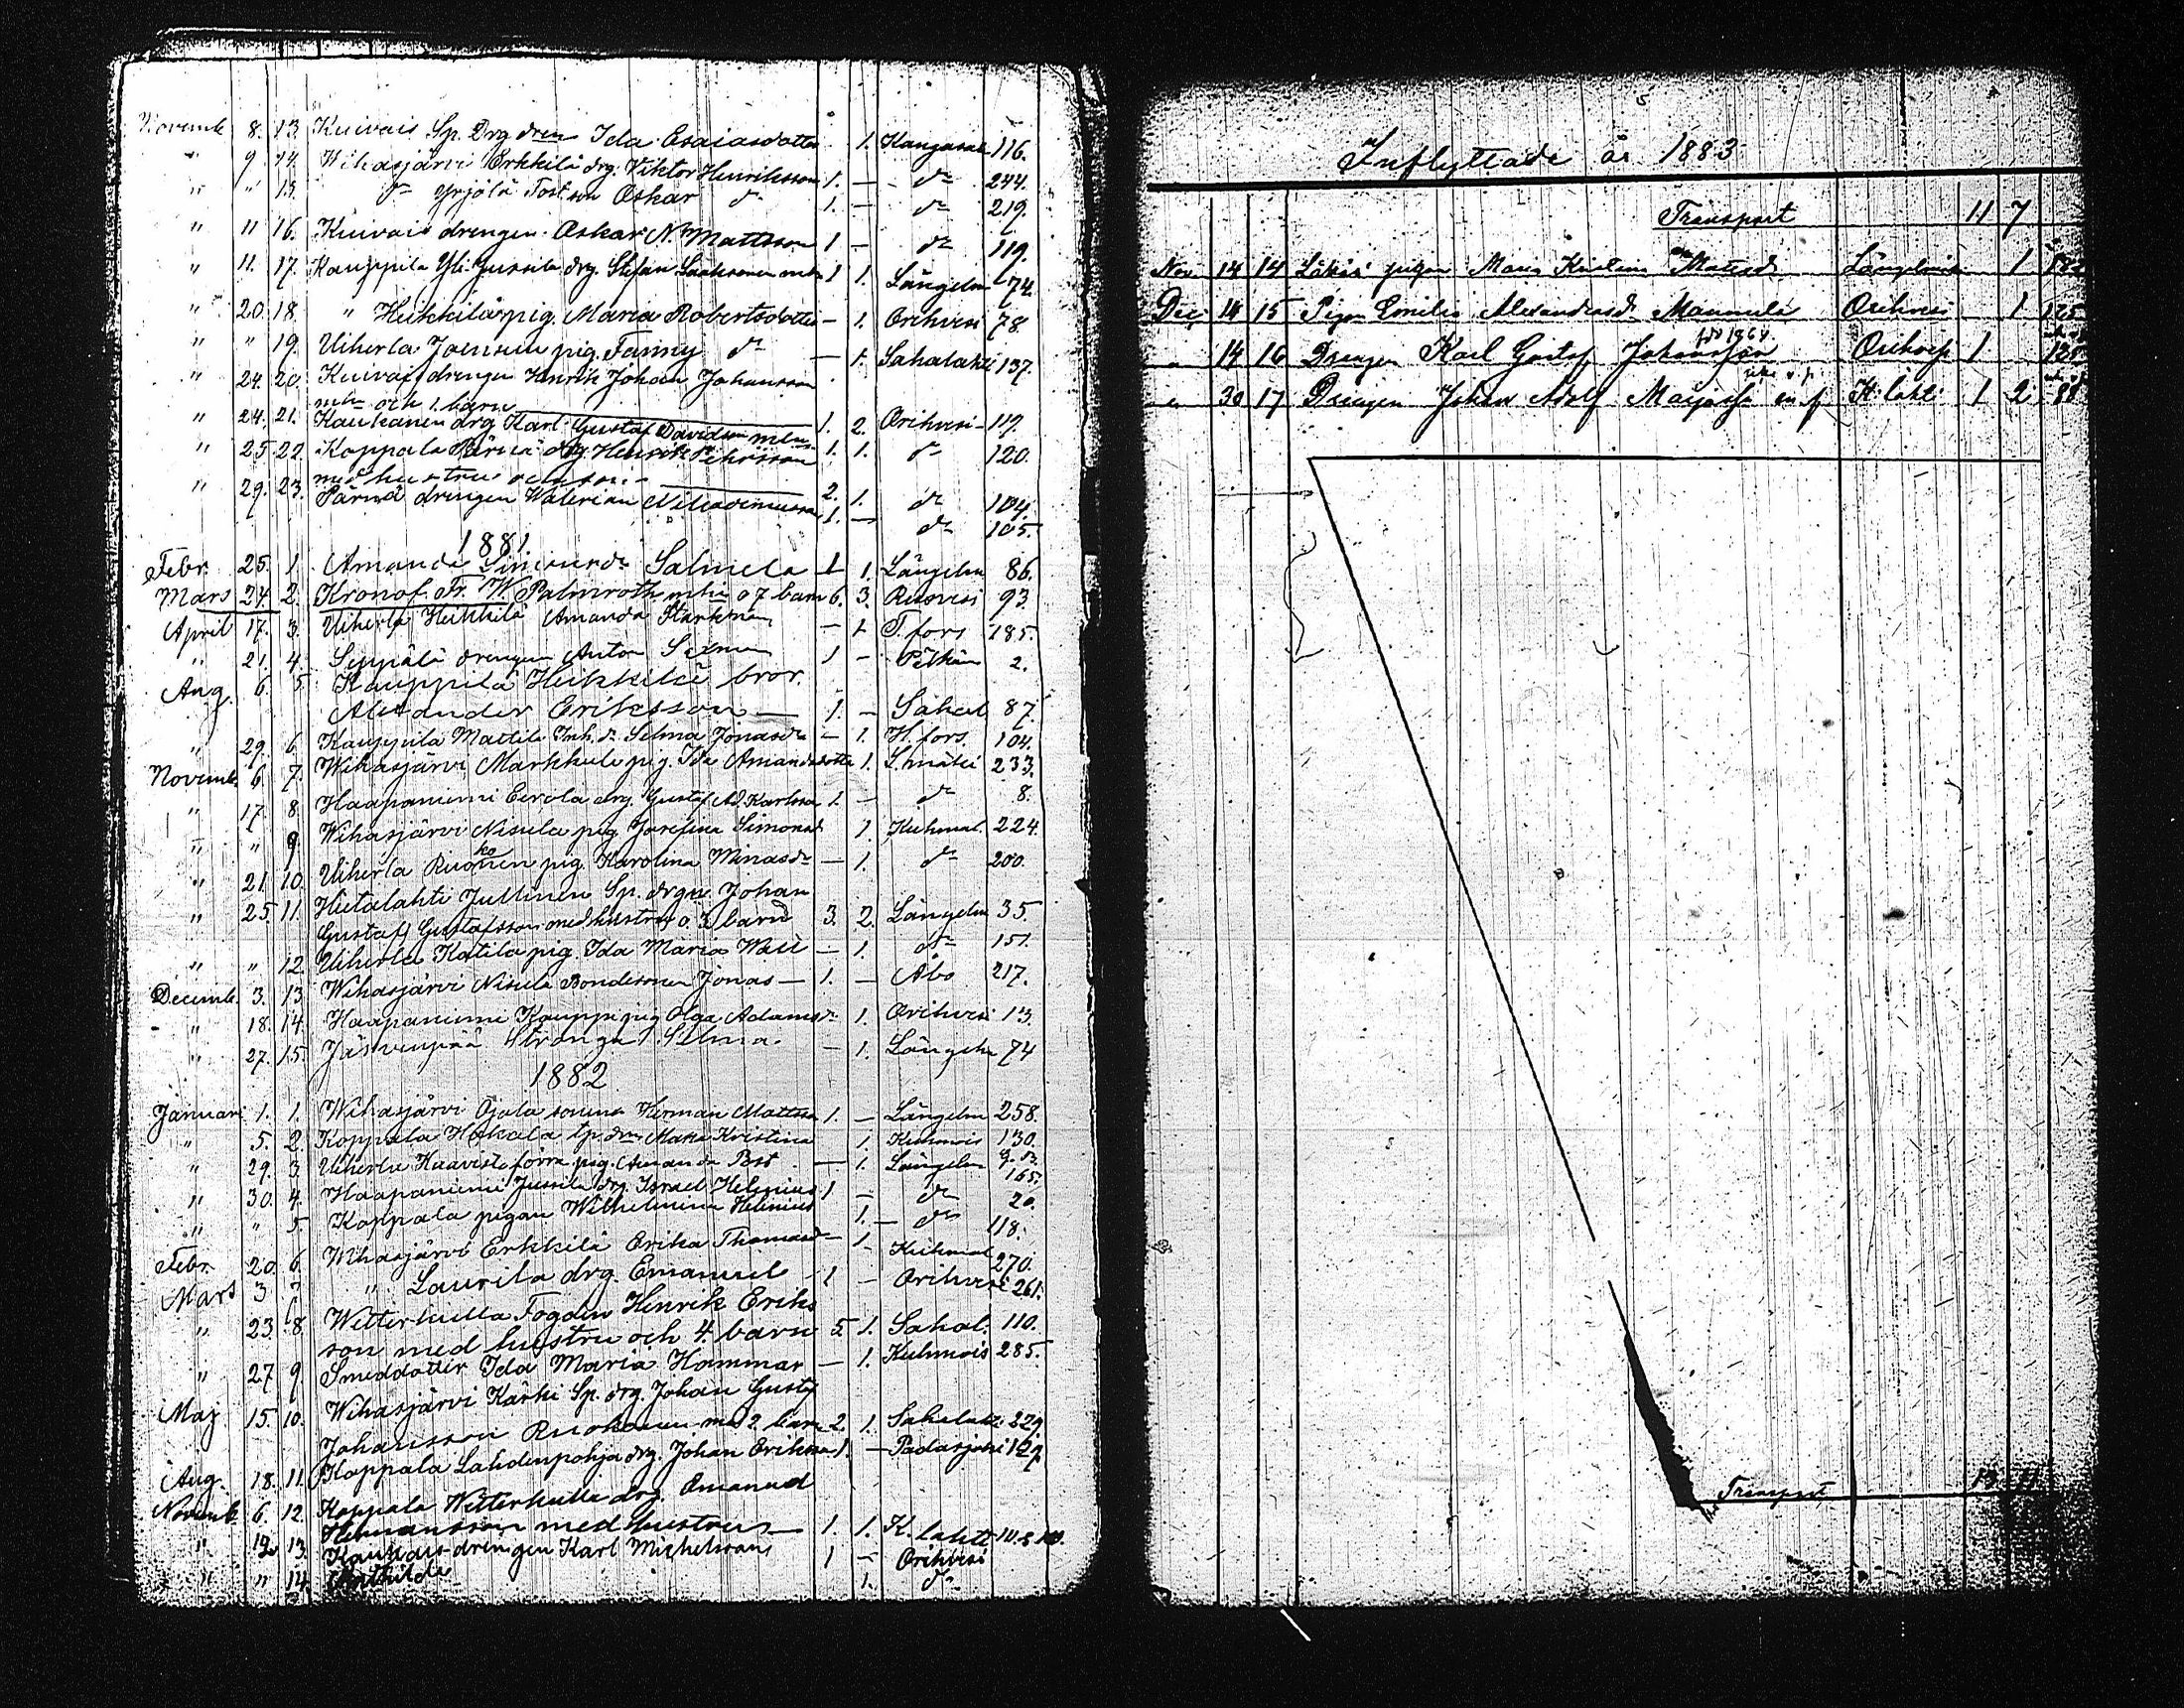 Novemb. 8. 13. Kuivais Sp. Drg dren Ida Esaiasdotter 1. Kangasala 116.
" 9. 14. Wihasjärvi Erkkilä drg. Viktor Henriksson 1. — do 244.
" " 15. do Yrjölä Fost. son Oskar do 1. — do 219.
" 11 16. Kuivais drengen Oskar N. Mattsson 1 — do 119.
" 11. 17. Kauppila Yli Jussila drg. Stefan mhu 1 1. Längelm 74.
" 20. 18. " Heikkilä pig. Maria Robertsdotter — 1. Orihvesi 78.
" " 19. Uiherla Joensuu pig. Fanny do — 1. Sahalaks 137.
" 24. 20. Kuivais drengen Henrik Johan Johansson
mhu och 1. barn 1. 2. Orihvesi 119.
" 24. 21. Kaukanen drg Karl Gustaf Davidsson mhu 1. 1. do 120.
" 25 22. Koppala Pärnä drg. Henrik
med hustru och son 2. 1. do 104.
" 29. 23. Pärnä drengen Walerian 1. — do 105.
1881.
Febr. 25. 1. Amanda Salmela 1 1. Längelm 86.
Mars 24. 2. Kronof. Fr. W. Palmroth mhu o 7 barn 6. 3. Ruovesi 93.
April 17. 3. Uiherla Heikkilä Amanda — 1 T.fors 185.
" 21. 4. Seppälä drengen Anton 1 — Pälkän 2.
Aug. 6. 5. Kauppila Heikkilä bror.
Alexander Eriksson — 1. — Sahal 87.
" 29. 6. Kauppila Mattila Inh. dr Selma Jonasdr — 1. H.fors. 104.
Novemb. 6 7. Wihasjärvi Markkula pig. Ida Amandadotter 1. 233.
" 17. 8. Haapaniemi Eerola drg. Gustaf Ad. Karlsson 1. — do 8.
" " 9. Wihasjärvi Nisula pig Josefina Simonsd 1. Kuhmal. 224.
" 21. 10. Uiherla Ruokonen pig. Karolina — 1. do 200.
" 25. 11. Hietalahti Jullinen Sp. drgn Johan
Gustaf Gustafsson med hustru o. 3 barn 3. 2. Längelm 35.
" " 12. Uiherla Katila pig. Ida Maria — 1. do 151.
Decemb. 3. 13 Wihasjärvi Nisula Bondesonen Jonas — 1. — Åbo 217.
" 18. 14. Haapaniemi Kauppi pig Olga Adamsdr 1. Orihvesi 13.
" 27. 15. Järvenpää Selma. — 1. Längelm 74
1882
Januari 1. 1. Wihasjärvi Ojala sonen Herman Mattsson 1. — Längelm 258.
" 5. 2. Koppala Hakala Maria Kristina 1. Kuhmois 130.
" 29. 3 Uiherla Haavisto förra pig. Amanda — 1. Längelm 165.
" 30. 4. Haapaniemi Jussila drg. Israel Helenius 1 — do 20.
" " 5 Koppala pigan Wilhelmina Helenius 1. — do 118.
Febr. 20. 6. Wihasjärvi Erkkilä Erika Thomasdr — 1. Kuhmal 270.
Mars 3 7 " Laurila drg. Emanuel 1 — Orihvesi 261.
" 23. 8. Witterkulla Fogden Henrik Eriks
son med hustru och 4. barn 5. 1. Sahal. 110.
" 27 9 Smeddotter Ida Maria Hammar — 1. Kuhmois 285.
Maj 15. 10. Wihasjärvi Kärki Sp. drg. Johan Gustaf
Johansson Ruokonen med 2. barn 2. 1. Sahalaks 229.
Aug. 18. 11. Koppala Lahdenpohja drg. Johan Eriksson 1. — Padasjoki 129
Novemb. 6. 12. Koppala Witterkulla drg. Emanuel
Hermansson med hustru — 1. 1. K. lahti
" 12. 13. drengen Karl Michelsson 1 — Orihvesi
" " 14. Mathilda 1. do
Inflyttade år 1883
Transport 11 7
Nov. 14 14 pigan Maria Kristina Matsd Längelmäki 1
Dec. 14 15 Pigan Emilia Alexandersd. Mannila Orihvesi 1 125
" 14 16 Drengen Karl Gustaf Johansson Orihvesi 1
" 30 17 Drengen Johan Adolf K:lahti 1 2 88
Transport 13 11